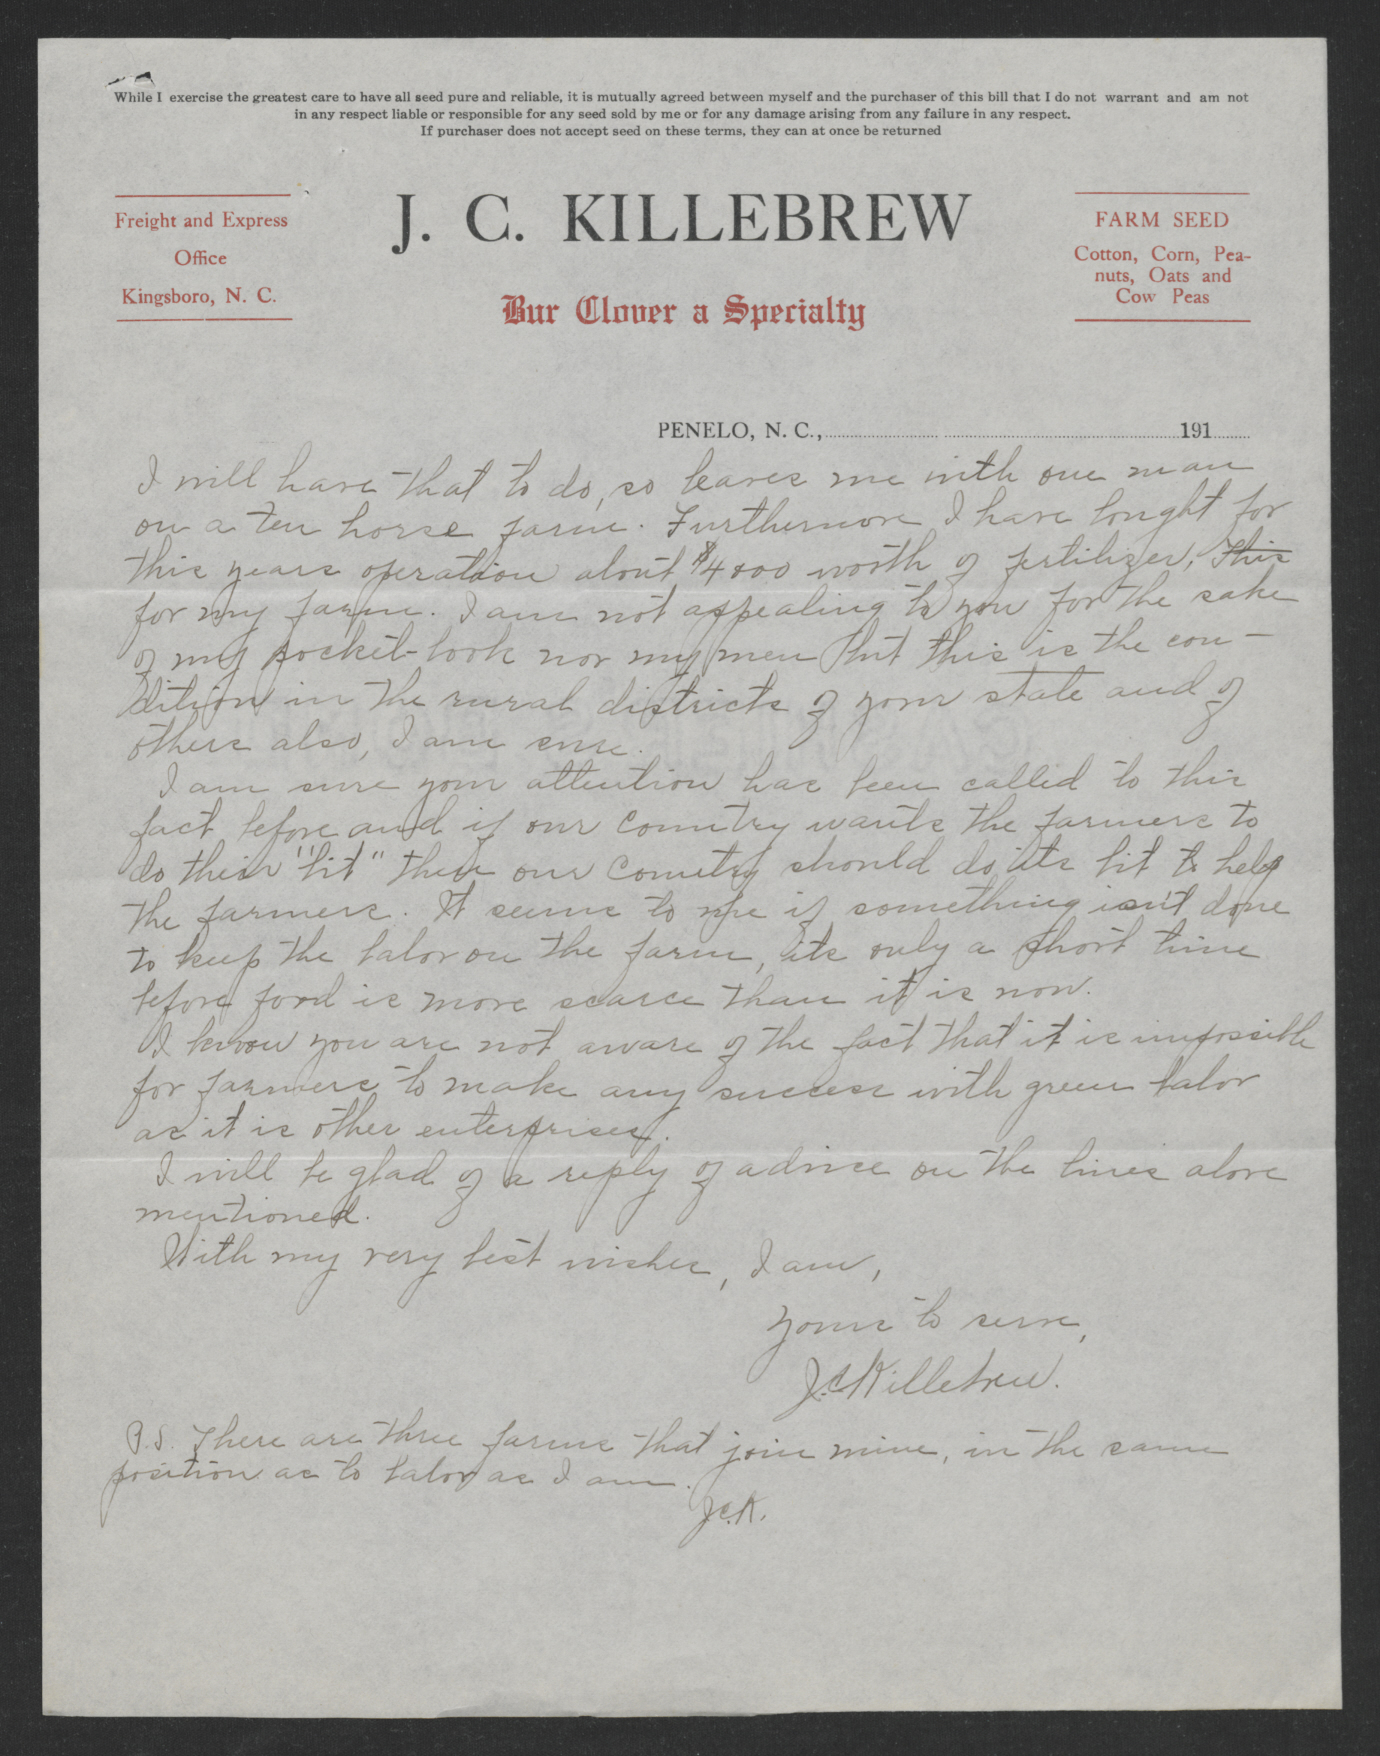 While I exercise the greatest care to have all seed pure and reliable, it is mutually agreed between myself and the purchaser of this bill that I do not warrant and am not
in any respect liable or responsible for any seed sold by me or for any damage arising from any failure in any respect.
If purchaser does not accept seed on these terms, they can at once be returned
Freight and Express
Office
Kingsboro, N. C.
J. C. KILLEBREW
Bur Clover a Specialty
FARM SEED
Cotton, Corn, Pea-
nuts, Oats and
Cow Peas
PENELO, N. C., 191
I will have that to do, so leaves me with one man
on a ten horse farm. Furthermore I have bought for
this years operation about $4000 worth of fertilizer, this
for my farm. I am not appealing to you for the sake
of my pocket-book nor my men but this is the con-
dition in the rural districts of your state and of
others also, I am sure.
I am sure your attention has been called to this
fact before and if our Country wants the farmers to
do their "bit" then our Country should do its bit to help
the farmers. It seems to me if something isn't done
to keep the labor on the farm, its only a short time
before food is more scarce than it is now.
I know you are not aware of the fact that it is impossible
for farmers to make any success with green labor
as it is other enterprises.
I will be glad of a reply of advice on the lines above
mentioned.
With my very best wishes, I am,
Yours to serve,
J.C. Killebrew.
P.S. There are three farms that join mine, in the same
position as to labor as I am.
J.C.K.